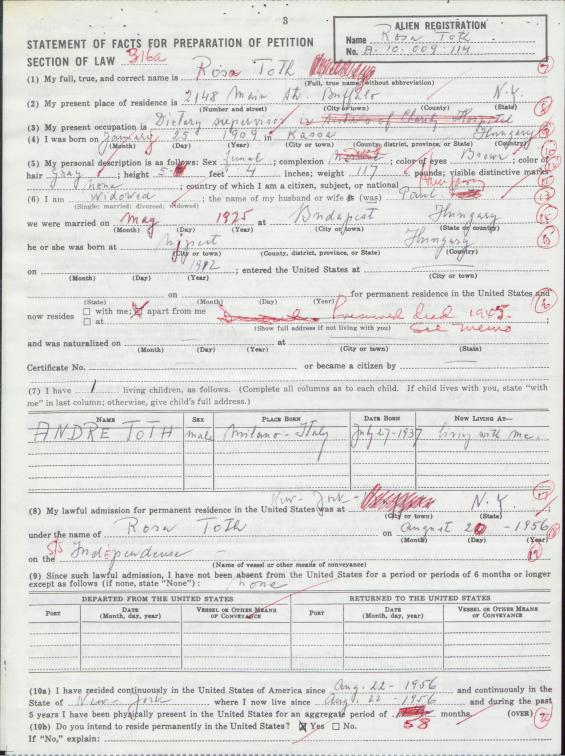 3
ALIEN REGISTRATION
Name Rosa Toth
No. A-10 009 114
STATEMENT OF FACTS FOR PREPARATION OF PETITION
SECTION OF LAW 316a
(1) My full, true, and correct name is Rosa Toth
(Full, true name, without abbreviation)
(2) My present place of residence is 2148 Main St. Buffalo N.Y.
(Number and street) (City or town) (County) (State)
(3) My present occupation is Dietary supervisor Sisters of Charity Hospital
(4) I was born on January 25 1909 in Kassa Hungary
(Month) (Day) (Year) (City or town) (County, district, province, or State) (Country)
(5) My personal description is as follows: Sex female; complexion ; color of eyes Brown; color of
hair Gray; height 5 feet 4 inches; weight 117 pounds; visible distinctive marks
none; country of which I am a citizen, subject, or national
(6) I am Widowed; the name of my husband or wife is (was) Paul
(Single; married; divorced; widowed)
we were married on May 1925 at Budapest Hungary
(Month) (Day) (Year) (City or town) (State or country)
he or she was born at Ujpest Hungary
(City or town) (County, district, province, or State) (Country)
on 1912; entered the United States at
(Month) (Day) (Year) (City or town)
on for permanent residence in the United States and
(State) (Month) (Day) (Year)
now resides ☐ with me; ☒ apart from me Presumed died 1945.
☐ at See memo
(Show full address if not living with you)
and was naturalized on at
(Month) (Day) (Year) (City or town) (State)
Certificate No. or became a citizen by
(7) I have 1 living children, as follows. (Complete all columns as to each child. If child lives with you, state "with
me" in last column; otherwise, give child's full address.)
NAME SEX PLACE BORN DATE BORN NOW LIVING AT—
ANDRE TOTH male Milano - Italy July 27-1937 living with me.
(8) My lawful admission for permanent residence in the United States was at New-York- N.Y.
(City or town) (State)
under the name of Rosa Toth on August 20 - 1956
(Month) (Day) (Year)
on the S/S Independence
(Name of vessel or other means of conveyance)
(9) Since such lawful admission, I have not been absent from the United States for a period or periods of 6 months or longer
except as follows (if none, state "None"): none
DEPARTED FROM THE UNITED STATES RETURNED TO THE UNITED STATES
PORT DATE (Month, day, year) VESSEL OR OTHER MEANS OF CONVEYANCE PORT DATE (Month, day, year) VESSEL OR OTHER MEANS OF CONVEYANCE
(10a) I have resided continuously in the United States of America since Aug. 22 - 1956 and continuously in the
State of New-York where I now live since Aug. 22 - 1956 and during the past
5 years I have been physically present in the United States for an aggregate period of 58 months. (OVER)
(10b) Do you intend to reside permanently in the United States? ☒ Yes ☐ No.
If "No," explain: